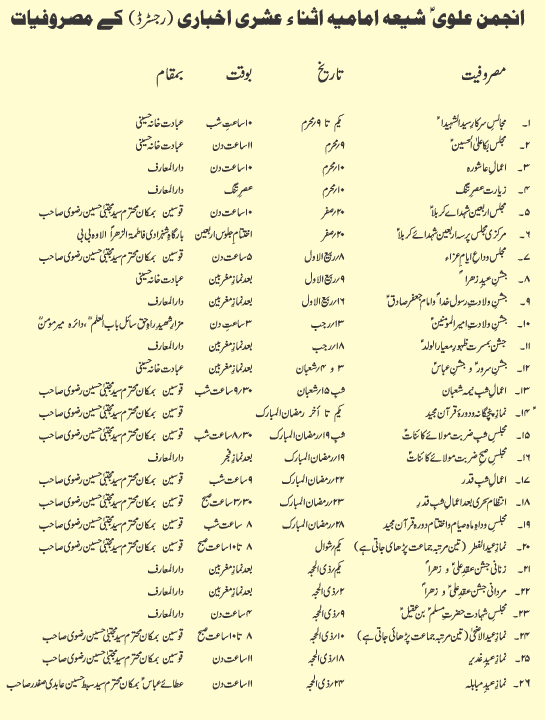 انجمن علوی شیعہ امامیہ اثناء عشری اخباری (رجسٹرڈ) کے مصروفیات
مصروفیت تاریخ بوقت بمقام
۱۔ مجالس سرکار سید الشہداءؑ یکم تا ۹؍محرم ۱۰ ساعت شب عبادت خانہ حسینی
۲۔ مجلس بکا علی الحسینؑ ۹؍محرم ۱۱ ساعت دن عبادت خانہ حسینی
۳۔ اعمال عاشورہ ۱۰؍محرم ۱۰ ساعت دن دارالمعارف
۴۔ زیارت عصر تنگ ۱۰؍محرم عصر تنگ دارالمعارف
۵۔ مجلس اربعین شہدائے کربلاؑ ۲۰؍صفر ۱۰ ساعت دن قوسین بمکان محترم سید مجتبیٰ حسین رضوی صاحب
۶۔ مرکزی مجلس پرسہ اربعین شہدائے کربلاؑ ۲۰؍صفر اختتام جلوس اربعین بارگاہ شہزادی فاطمۃ الزہراؑ الاوہ بی بی
۷۔ مجلس وداع ایام عزاء ۸؍ربیع الاول ۵ ساعت دن قوسین بمکان محترم سید مجتبیٰ حسین رضوی صاحب
۸۔ جشن عید زہراؑ ۹؍ربیع الاول بعد نماز مغربین عبادت خانہ حسینی
۹۔ جشن ولادت رسول خداؐ و امام جعفر صادقؑ ۱۶؍ربیع الاول بعد نماز مغربین دارالمعارف
۱۰۔ جشن ولادت امیر المومنینؑ ۱۳؍رجب ۳ ساعت دن مزار شہید راہ حق سائل باب العلمؒ، دائرہ میر مومنؒ
۱۱۔ جشن بمسرت ظہور معیار الولدؑ ۱۸؍رجب بعد نماز مغربین دارالمعارف
۱۲۔ جشن سرورؑ و جشن عباسؑ ۳ و ۴؍شعبان بعد نماز مغربین عبادت خانہ حسینی
۱۳۔ اعمال شب نیمہ شعبان شب ۱۵؍شعبان ۹/۳۰ ساعت شب قوسین بمکان محترم سید مجتبیٰ حسین رضوی صاحب
۱۴۔ نماز پنجگانہ و دورۂ قرآن مجید یکم تا آخر رمضان المبارک قوسین بمکان محترم سید مجتبیٰ حسین رضوی صاحب
۱۵۔ مجلس شب ضربت مولائے کائناتؑ شب ۱۹؍رمضان المبارک ۸/۳۰ ساعت شب قوسین بمکان محترم سید مجتبیٰ حسین رضوی صاحب
۱۶۔ مجلس صبح ضربت مولائے کائناتؑ ۱۹؍رمضان المبارک بعد نماز فجر دارالمعارف
۱۷۔ اعمال شب قدر ۲۲؍رمضان المبارک ۹ ساعت شب قوسین بمکان محترم سید مجتبیٰ حسین رضوی صاحب
۱۸۔ انتظام سحری بعد اعمال شب قدر ۲۳؍رمضان المبارک ۳/۳۰ ساعت صبح قوسین بمکان محترم سید مجتبیٰ حسین رضوی صاحب
۱۹۔ مجلس وداع ماہ صیام و اختتام دورہ قرآن مجید ۲۸؍رمضان المبارک ۸ ساعت شب قوسین بمکان محترم سید مجتبیٰ حسین رضوی صاحب
۲۰۔ نماز عید الفطر (تین مرتبہ جماعت پڑھائی جاتی ہے) یکم؍شوال ۸ تا ۱۰ ساعت صبح قوسین بمکان محترم سید مجتبیٰ حسین رضوی صاحب
۲۱۔ زنانی جشن عقد علیؑ و زہراؑ یکم؍ذی الحجہ بعد نماز مغربین دارالمعارف
۲۲۔ مردانی جشن عقد علیؑ و زہراؑ ۲؍ذی الحجہ بعد نماز مغربین دارالمعارف
۲۳۔ مجلس شہادت حضرت مسلمؑ بن عقیلؑ ۹؍ذی الحجہ ۴ ساعت دن دارالمعارف
۲۴۔ نماز عید الاضحیٰ (تین مرتبہ جماعت پڑھائی جاتی ہے) ۱۰؍ذی الحجہ ۸ تا ۱۰ ساعت صبح قوسین بمکان محترم سید مجتبیٰ حسین رضوی صاحب
۲۵۔ نماز عید غدیر ۱۸؍ذی الحجہ ۱۱ ساعت دن قوسین بمکان محترم سید مجتبیٰ حسین رضوی صاحب
۲۶۔ نماز عید مباہلہ ۲۴؍ذی الحجہ ۱۱ ساعت دن عطائے عباسؑ بمکان محترم سید سبط حسین عابدی صفدر صاحب